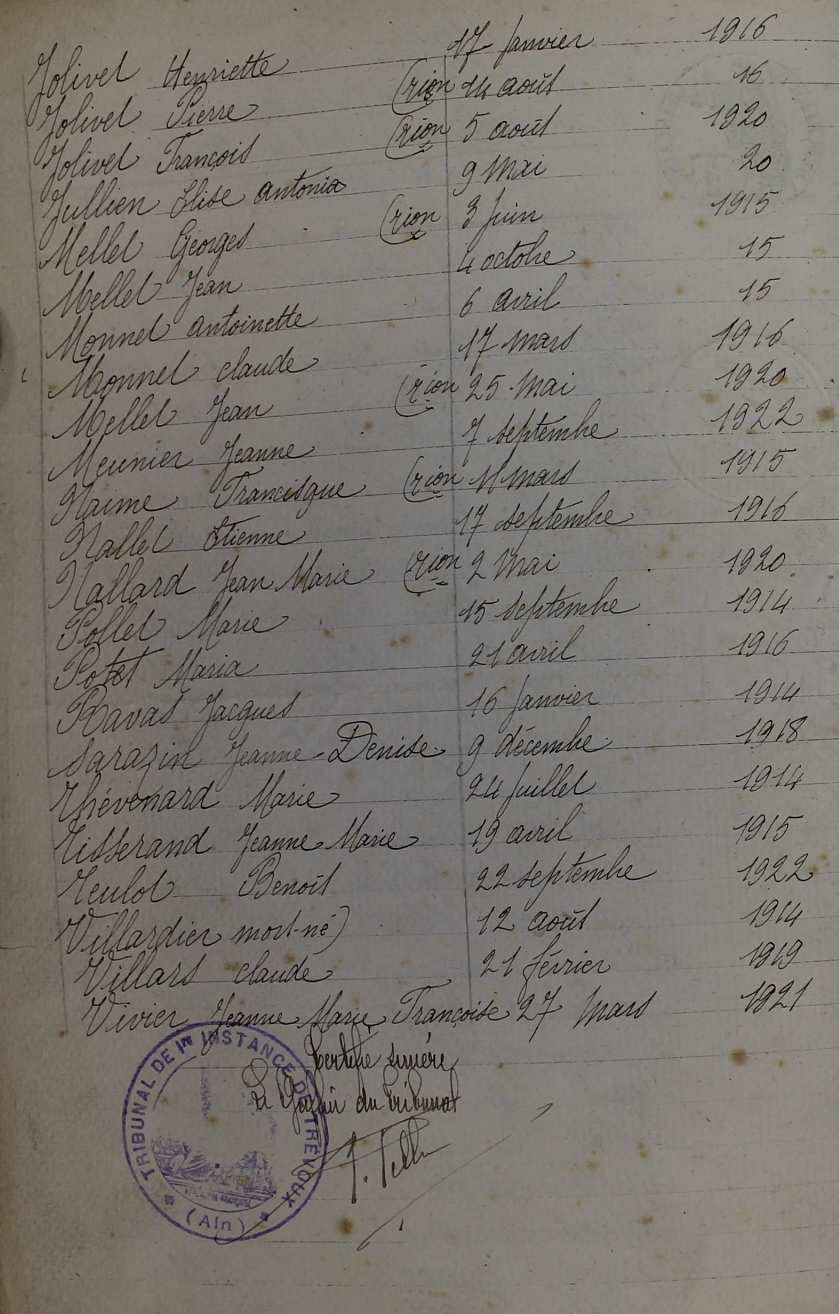 Jolivet Henriette 17 Janvier 1916
Jolivet Pierre (rion 14 août 16
Jolivet François (rion 5 août 1920
Jullien Elise Antonia 9 Mai 20
Mellet Georges (rion 3 Juin 1915
Mellet Jean 4 octobre 15
Monnet Antoinette 6 avril 15
Monnet Claude 17 Mars 1916
Mellet Jean (rion 25 Mai 1920
Meunier Jeanne 7 septembre 1922
Naime Francisque (rion 11 Mars 1915
Nallet Etienne 17 septembre 1916
Nallard Jean Marie (rion 2 Mai 1920
Pollet Marie 15 septembre 1914
Potet Maria 21 avril 1916
Ravas Jacques 16 Janvier 1914
Sarazin Jeanne-Denise 9 décembre 1918
Thévenard Marie 24 Juillet 1914
Tisserand Jeanne-Marie 19 avril 1915
Teulot Benoît 22 septembre 1922
Villardier mort-né) 12 août 1914
Villars Claude 21 février 1919
Vivier Jeanne Marie Françoise 27 Mars 1921
Certifié sincère
Le Greffier du Tribunal
TRIBUNAL DE 1re INSTANCE DE TRÉVOUX
(Ain)